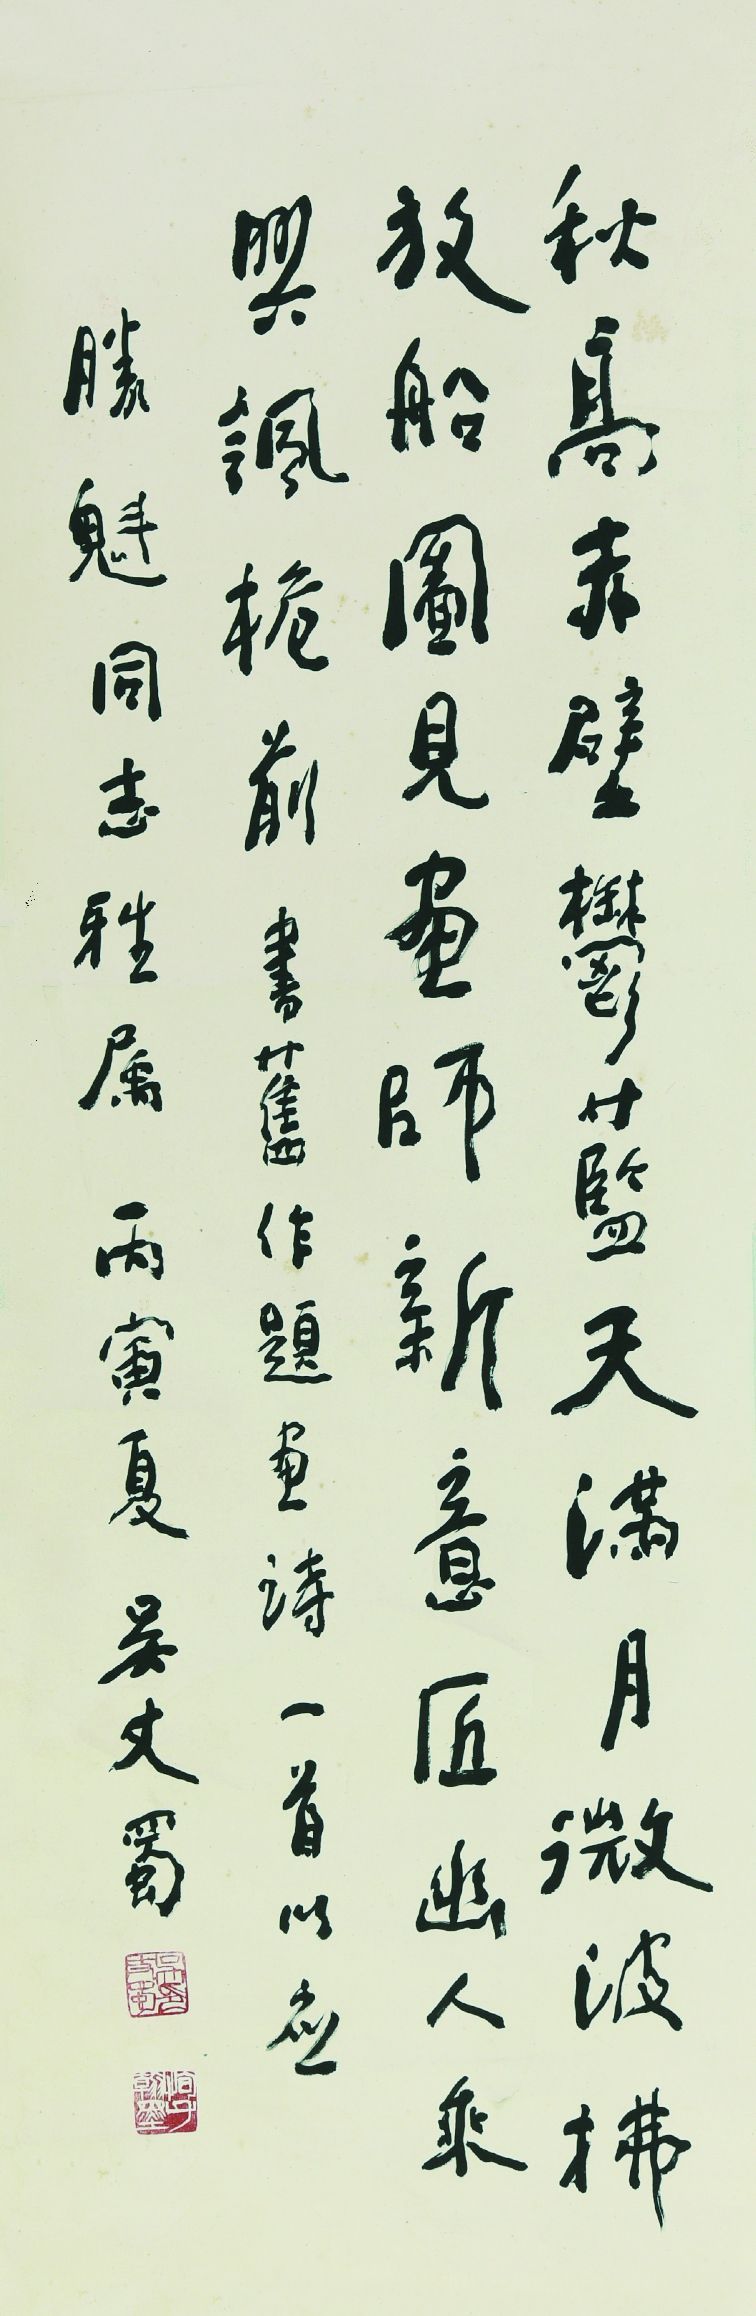 秋高赤壁鬱藍天滿月微波拂
放船圖見畫師新意匠幽人乘
興諷桅前書舊作題画詩一首以应
勝魁同志雅属丙寅夏吴丈蜀